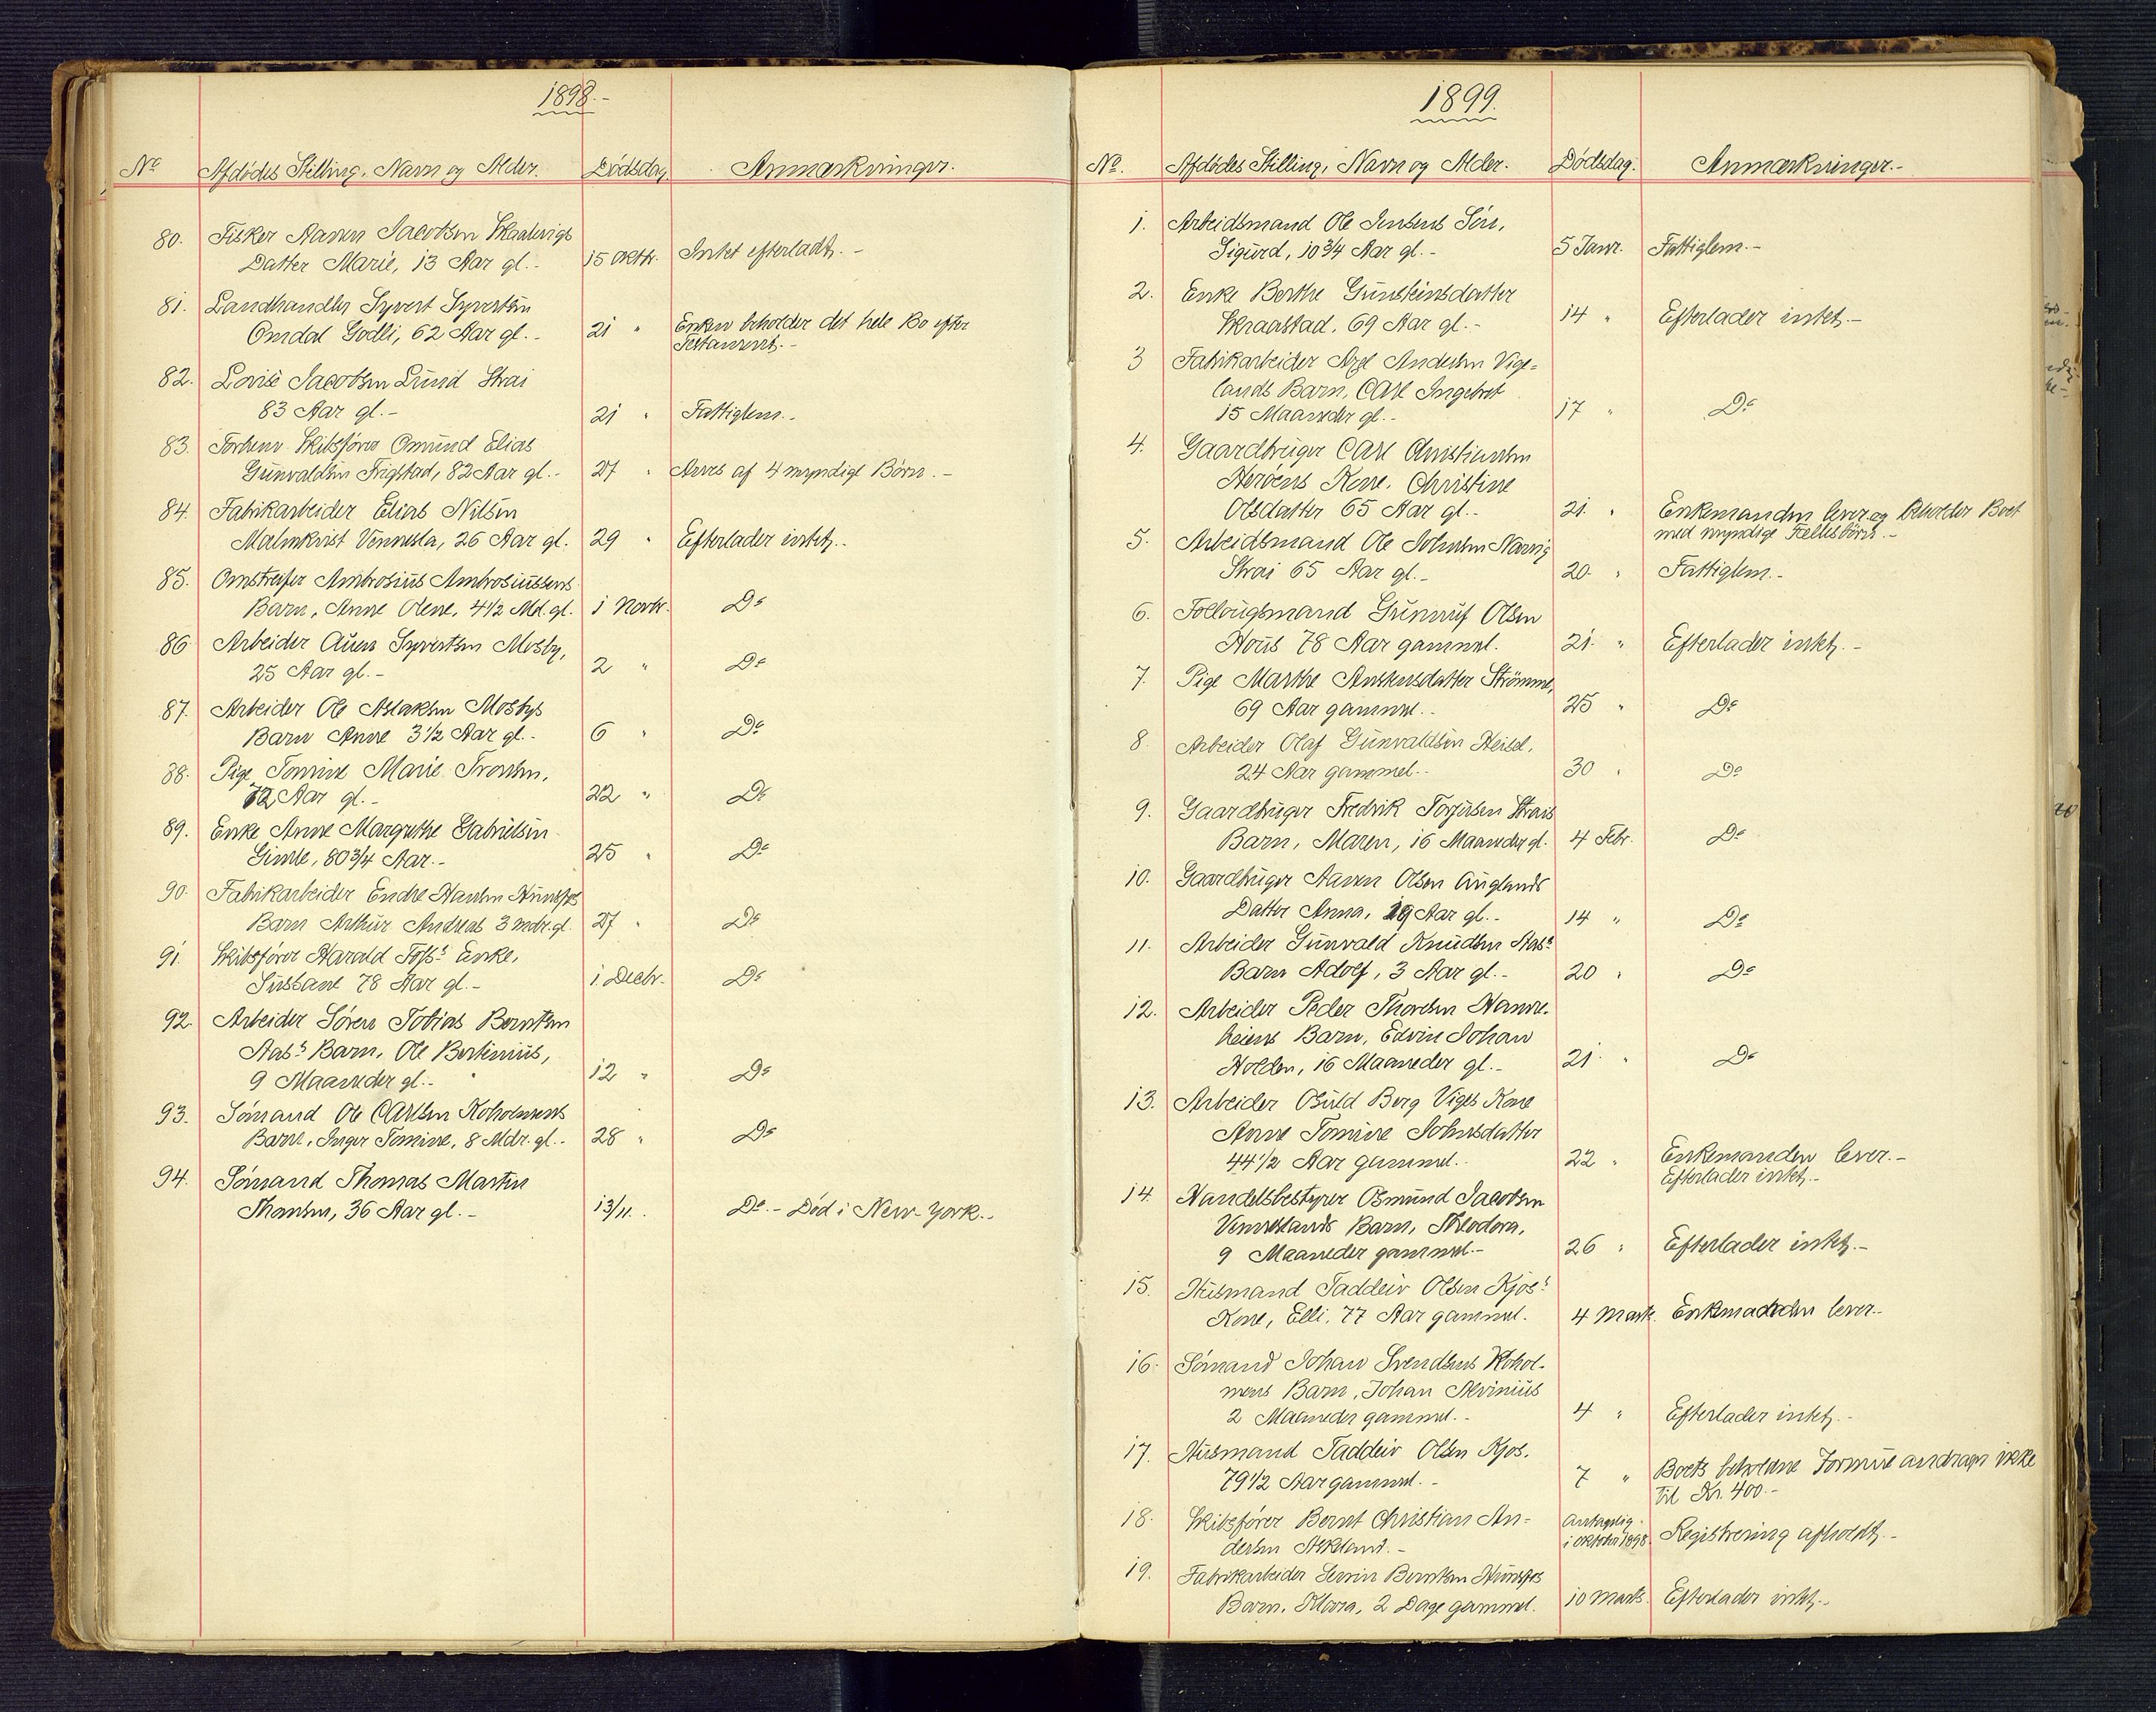 1898.-
No Afdödes Stilling, Navn og Alder. Dödsdag. Anmærkninger.
80. Fisker Aanen Jacobsen Skaalevigs
Datter Marie, 13 Aar gl.- 15 Oktbr. Intet efterladt.-
81. Landhandler Syvert Syvertsen
Omdal Godli, 62 Aar gl.- 21 " Enken beholder det hele Bo efter
Testament.-
82. Lovise Jacobsen Lund Strai
83 Aar gl.- 21 " Fattiglem.-
83. Forhenv. Skibsförer Omund Elias
Gunvaldsen Frigstad, 82 Aar gl.- 27 " Arves af 4 myndige Börn.-
84. Fabrikarbeider Elias Nilsen
Malmkvist Vennesla, 26 Aar gl. 29 " Efterlader intet.-
85. Omstreifer Ambrosius Ambrosiussens
Barn, Anne Olene, 4 1/2 Md. gl. 1 Novbr. Do
86 Arbeider Syvertsen Mosby,
25 Aar gl.- 2 " Do
87. Arbeider Ole Aslaksen Mosbys
Barn Anne 3 1/2 Aar gl.- 6 " Do
88. Pige Tomine Marie Tronsen,
72 Aar gl.- 22 " Do
89. Enke Anne Margrethe Gabrielsen
Gimle, 80 3/4 Aar.- 25 " Do
90. Fabrikarbeider Endre Hansen Hunsfos
Barn Arthur Andreas 3 mdr. gl. 27 " Do
91. Skibsförer Harald Foss's Enke,
Sussane 78 Aar gl.- 1. Decbr. Do
92. Arbeider Sören Tobias Berntsen
Aas's Barn, Ole Bertinius,
9 Maaneder gl.- 12 " Do
93. Sömand Ole Carlsen Koholmens
Barn, Inger Tomine, 8 Mdr. gl.- 28 " Do
94. Sömand Thomas Martin
Thomsen, 36 Aar gl.- 13/11. Do.- Död i New-York.-
1899.
No. Afdödes Stilling, Navn og Alder. Dödsdag. Anmærkninger.-
1. Arbeidsmand Ole Jensens Sön,
Sigurd, 10 3/4 Aar gl.- 5 Janr. Fattiglem.-
2. Enke Berthe Gunsteinsdatter
Skraastad, 69 Aar gl.- 14 " Efterlader intet.-
3 Fabrikarbeider Axel Andersen Vige=
lands Barn, Carl Ingebret
15 Maaneder gl.- 17 " Do
4. Gaardbruger Carl Christiansen
Heröens Kone, Christine
Olsdatter 65 Aar gl.- 21. " Enkemanden lever og beholder Boet
med myndige Fællesbörn.-
5. Arbeidsmand Ole Johnsen Narvig
Strai 65 Aar gl.- 20. " Fattiglem.-
6. Follougsmand Gunnuf Olsen
Hous 78 Aar gammel. 21. " Efterlader intet.-
7. Pige Marthe Anstensdatter Strömme,
69 Aar gammel.- 25 " Do
8. Arbeider Olaf Gunvaldsen Heisel,
24 Aar gammel.- 30 " Do
9. Gaardbruger Fredrik Torjusen Strais
Barn, Maren, 16 Maaneder gl. 4 Febr. Do
10. Gaardbruger Aanen Olsen Auglands
Datter Anna, 19 Aar gl.- 14 " Do
11. Arbeider Gunvald Knudsen Aas's
Barn Adolf, 3 Aar gl.- 20 " Do
12. Arbeider Peder Thorsen Hanne-
heiens Barn, Edvin Johan
Holden, 16 Maaneder gl.- 21. " Do
13. Arbeider Osuld Berg Viges Kone
Anne Tomine Johnsdatter
44 1/2 Aar gammel.- 22 " Enkemanden lever.-
Efterlader intet.-
14 Handelsbestyrer Osmund Jacobsen
Venneslands Barn, Theodora,
9 Maaneder gammel.- 26 " Efterlader intet.-
15. Husmand Taddeiv Olsen Kjos's
Kone, Elli, 77 Aar gammel. 4 Marts. Enkemanden lever.-
16. Sömand Johan Svendsens Kohol-
mens Barn, Johan Alvinius
2 Maaneder gammel.- 4 " Efterlader intet.-
17. Husmand Taddeiv Olsen Kjos.
79 1/2 Aar gammel.- 7 " Boets beholdne Formue andrager ikke
til Kr. 400.-
18. Skibsförer Bernt Christian An=
dersen.- Antagelig
i oktober 1898. Registrering afholdt.-
19. Fabrikarbeider Severin Berntsen Hunsfos
Barn, Klara, 2 Dage gammel. 10 Marts. Efterlader intet.-